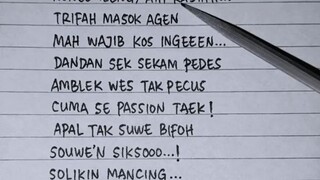 TRIFAH MASOK AGEN
MAH WAJIB KOS INGEEEN...
DANDAN SEK SEKAM PEDES
AMBLEK WES TAK PECUS
CUMA SE PASSION TAEK!
APAL TAK SUWE BIFOH
SOUWE'N SIKSOOO...!
SOLIKIN MANCING...